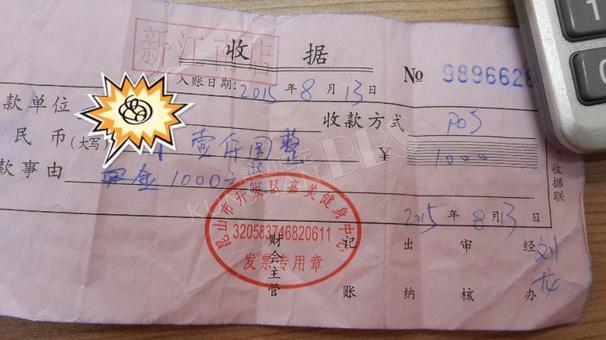 收 据
№ 9896628
入账日期：2015 年 8 月 13 日
款单位
收款方式 pos
民币(大写) 壹仟圆整 ¥ 1000
款事由 1000元
收据联
2015 年 8 月 13 日
昆山市开发区嘉美健身中心
320583746820611
发票专用章
财会主管
记账
出纳
审核
经办